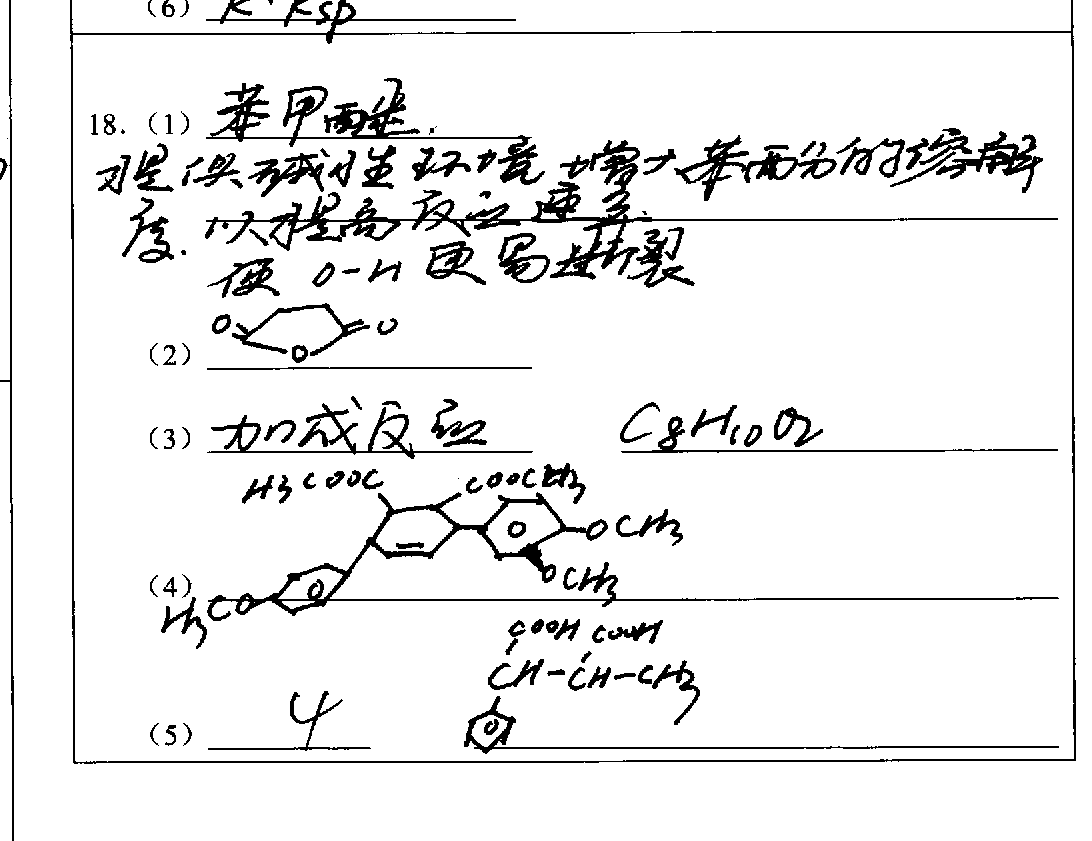 (6) K·Ksp
18.(1) 苯甲醚.
提供碱性环境增大苯酚的溶解
度.以提高反应速率.
使 O-H 更易断裂
O O
(2) O
(3) 加成反应 C8H10O2
H3COOC COOCH3
OCH3
(4) OCH3
H3CO
COOH COOH
CH-CH-CH3
(5) 4